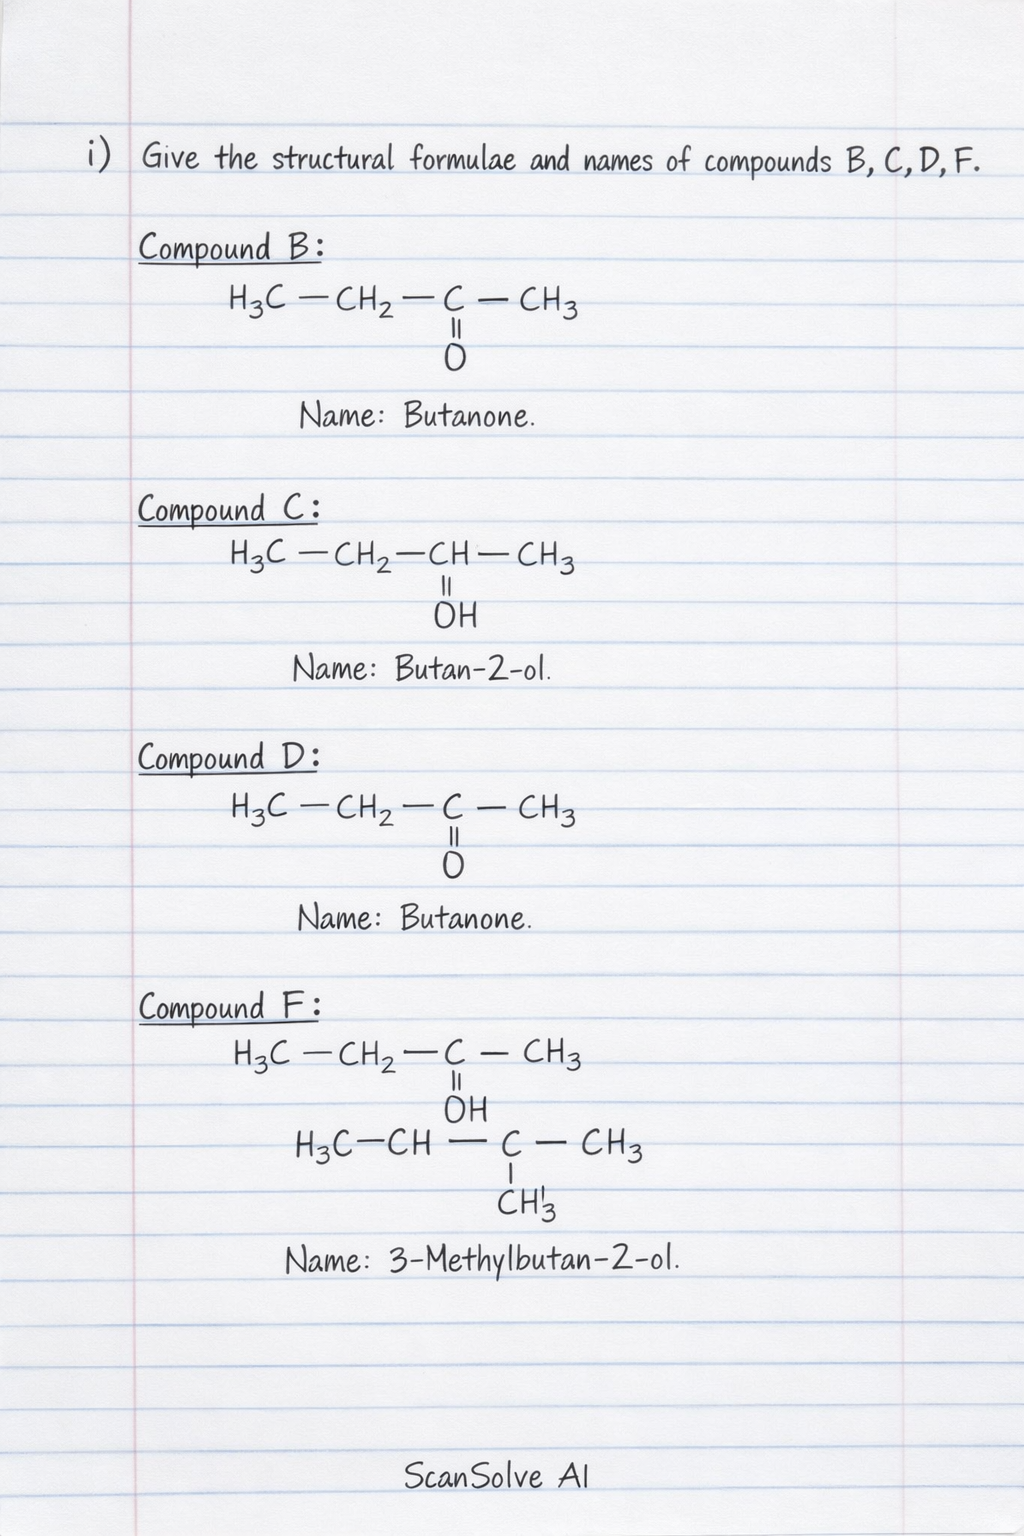 i) Give the structural formulae and names of compounds B, C, D, F.
Compound B:
H₃C — CH₂ — C — CH₃
||
O
Name: Butanone.
Compound C:
H₃C — CH₂ — CH — CH₃
||
OH
Name: Butan-2-ol.
Compound D:
H₃C — CH₂ — C — CH₃
||
O
Name: Butanone.
Compound F:
H₃C — CH₂ — C — CH₃
||
OH
H₃C — CH — C — CH₃
|
CH'₃
Name: 3-Methylbutan-2-ol.
ScanSolve AI